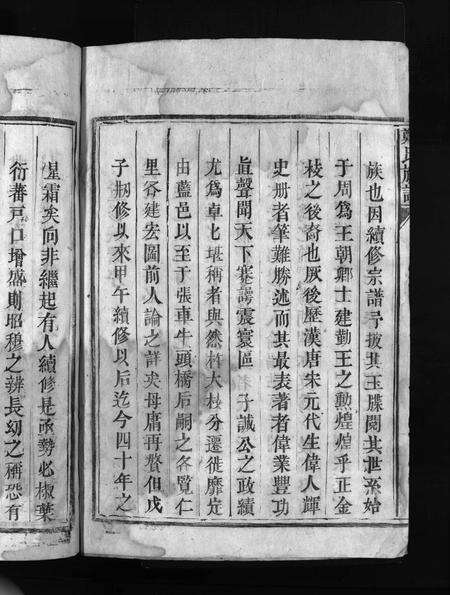 鄭氏族譜
族也因續修宗譜尋披其玉牒閱其世系始
于周為王朝卿士建勤王之勲煌煌乎正金
枝之後裔也厥後歷漢唐宋元代生偉人輝
史册者筆難勝述而其最表著者偉業豐功
眞聲聞天下蹇諤震寰區 子誠公之政績
尤為卓匕堪稱者與然料大枝分遷徙靡定
由藍邑以至于張車牛頭橋后嗣之各覧仁
里咨建宏圖前人論之詳矣毋庸再贅但戊
子剏修以來甲午續修以后迄今四十年之
星霜矣向非繼起有人續修是亟勢必椒葉
衍蕃戸口增盛則昭穆之辨長幼之稱恐有